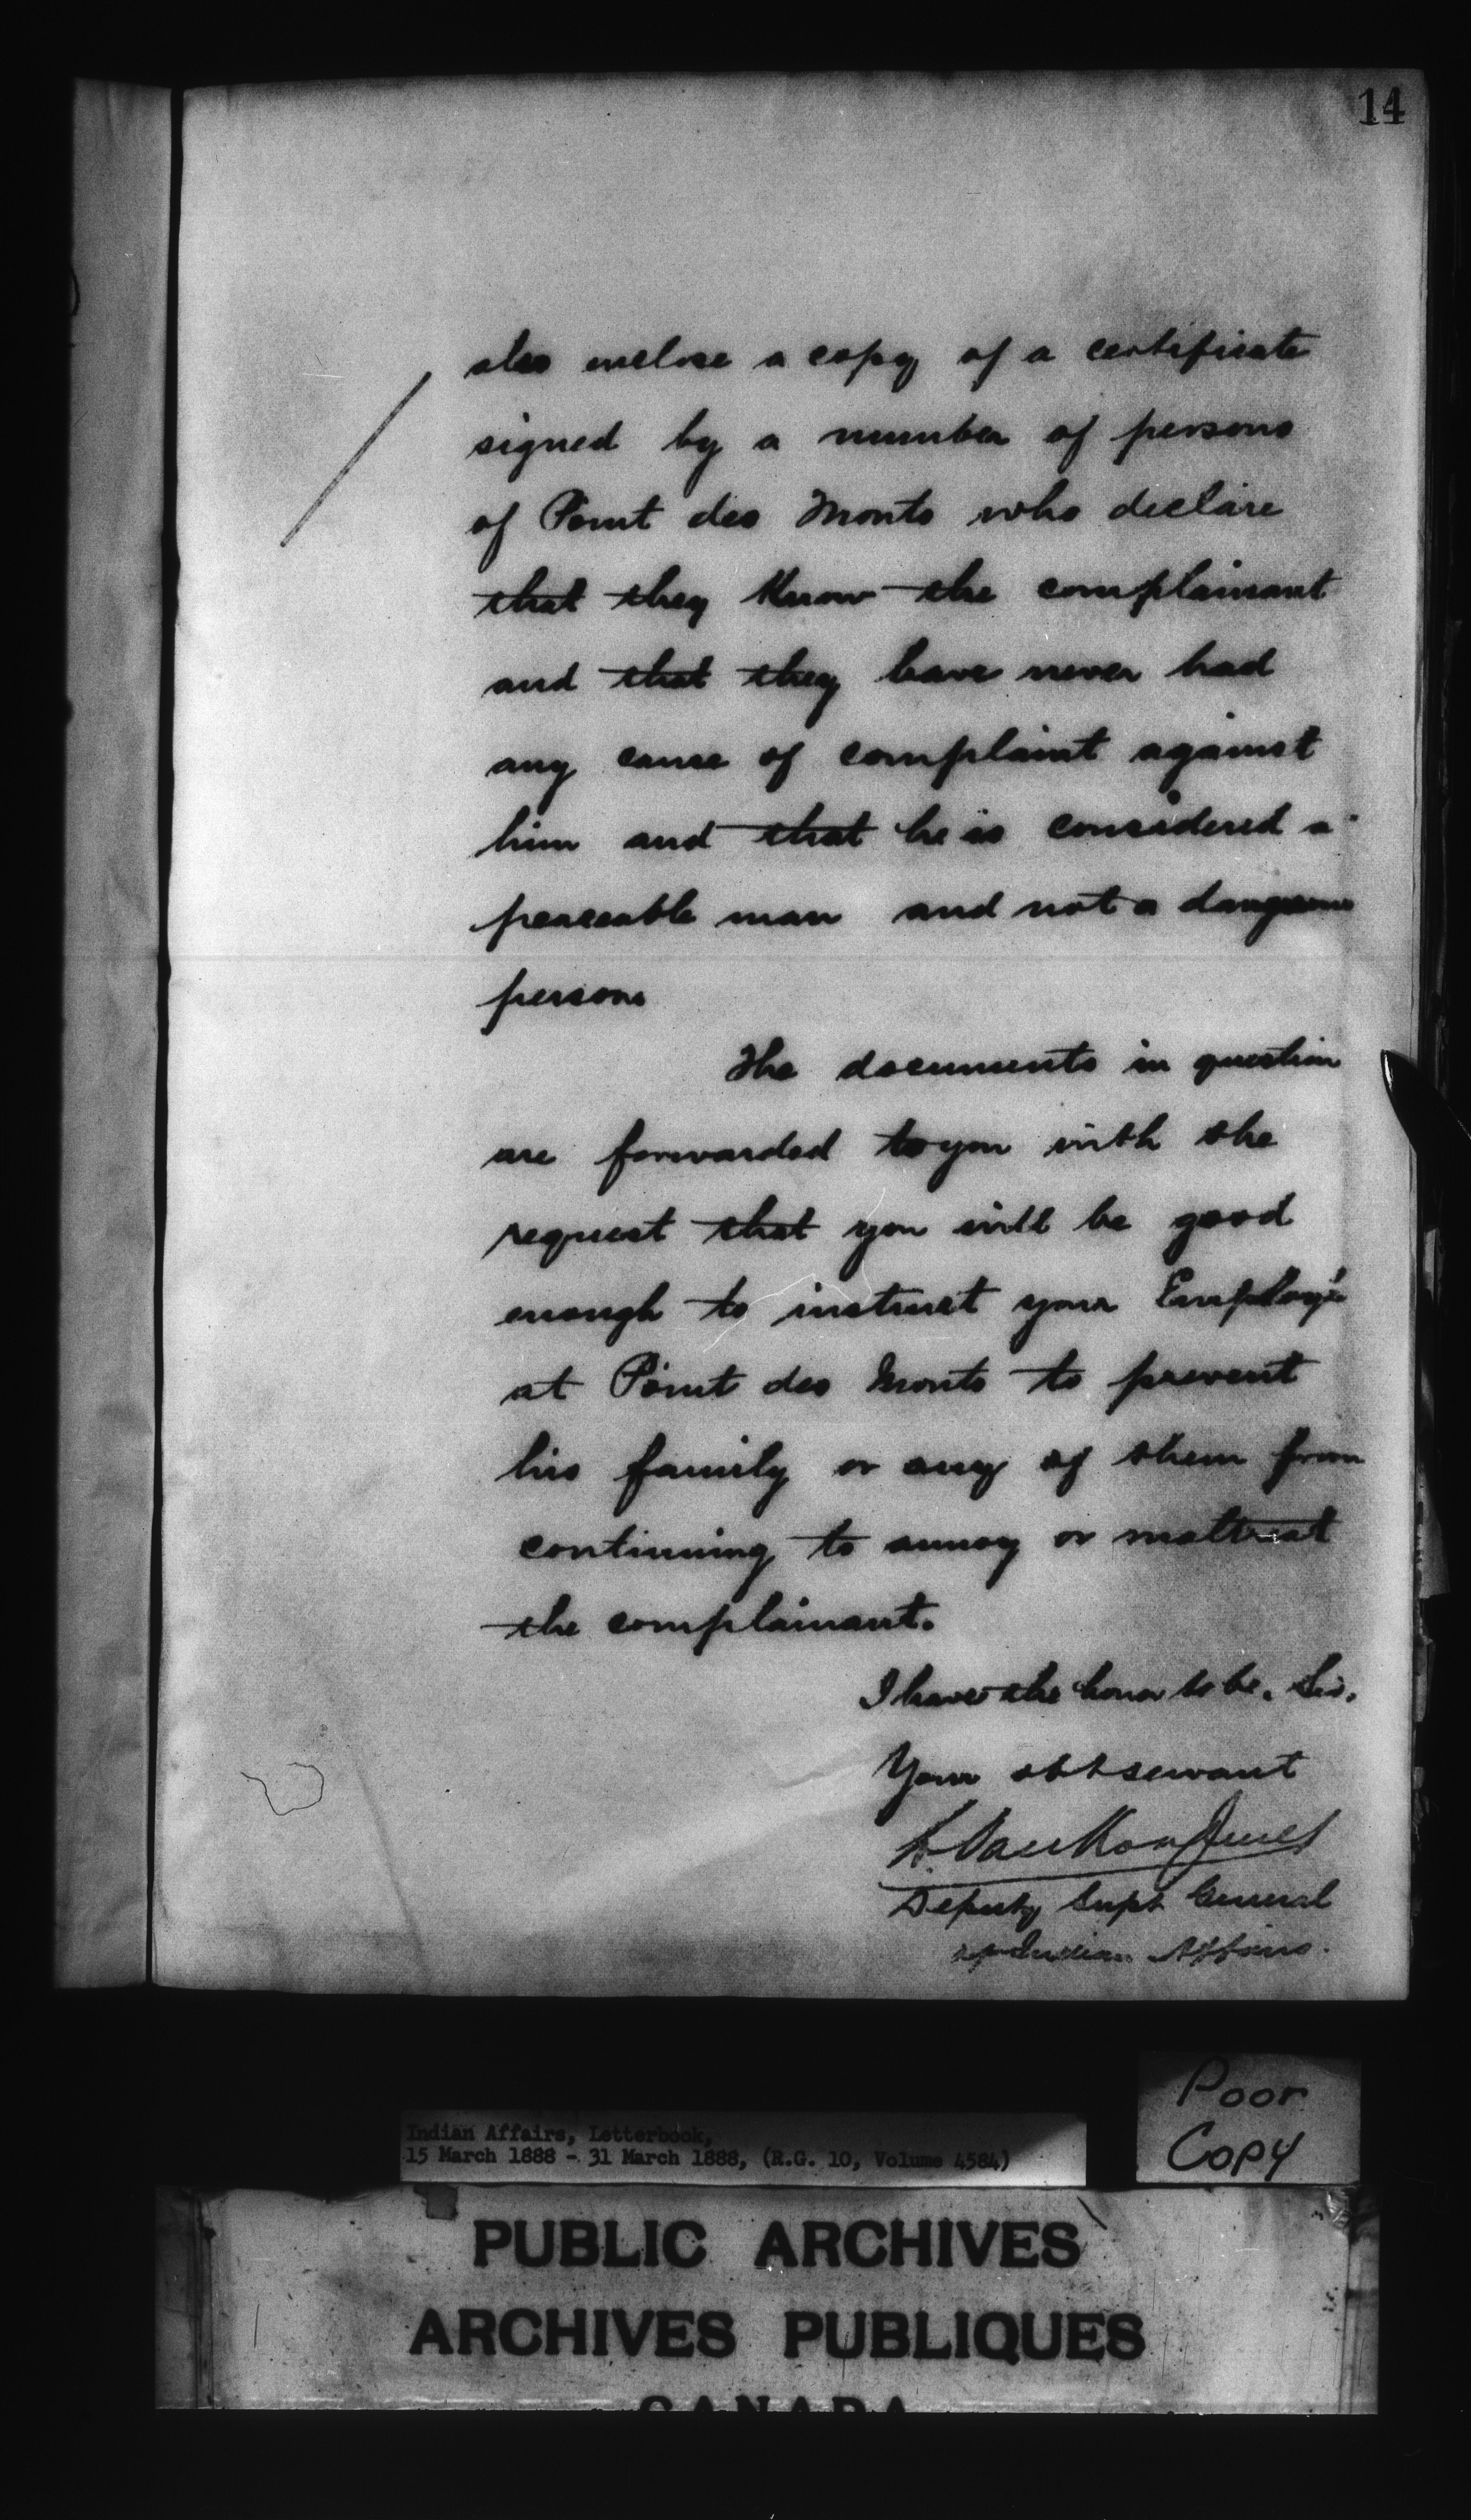 14
also enclose a copy of a certificate
signed by a number of persons
of Point des Monts who declare
that they know the complainant
and that they have never had
any cause of complaint against
him and that he is considered a
peaceable man and not a dangerous
person
The documents in question
are forwarded to you with the
request that you will be good
enough to instruct your Employé
at Point des Monts to prevent
his family or any of them from
continuing to annoy or maltreat
the complainant.
I have the honor to be, Sir,
Your obt servant
L. VanKoughnet
Deputy Supt General
of Indian Affairs.
Poor
Copy
Indian Affairs, Letterbook,
15 March 1888 - 31 March 1888, (R.G. 10, Volume 4584)
PUBLIC ARCHIVES
ARCHIVES PUBLIQUES
CANADA